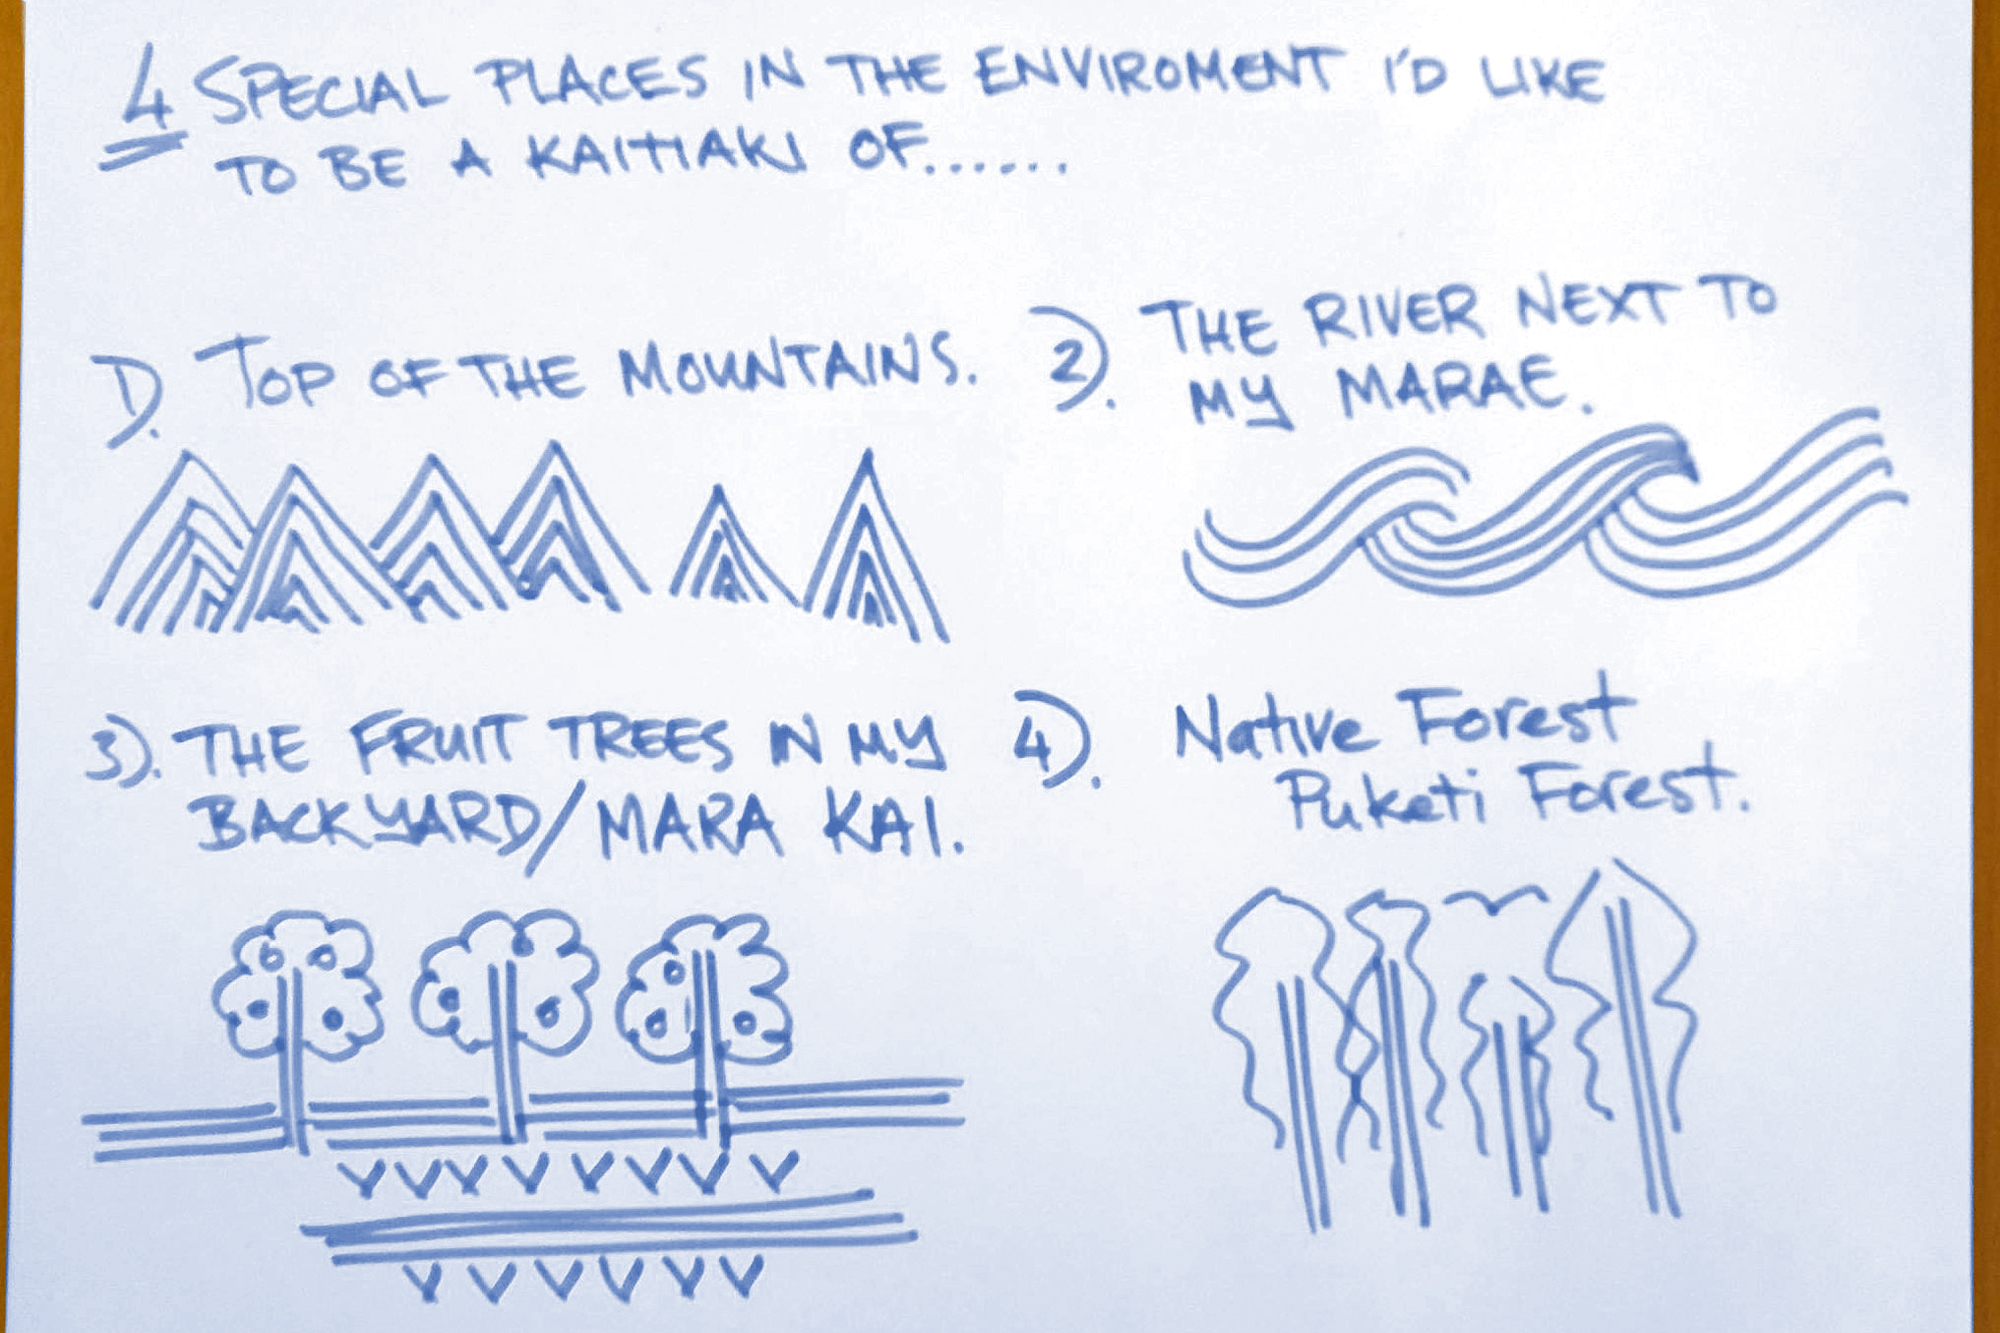 4 SPECIAL PLACES IN THE ENVIROMENT I'D LIKE
TO BE A KAITIAKI OF......
1). TOP OF THE MOUNTAINS.
2). THE RIVER NEXT TO
MY MARAE.
3). THE FRUIT TREES IN MY
BACKYARD/MARA KAI.
4). Native Forest
Puketi Forest.